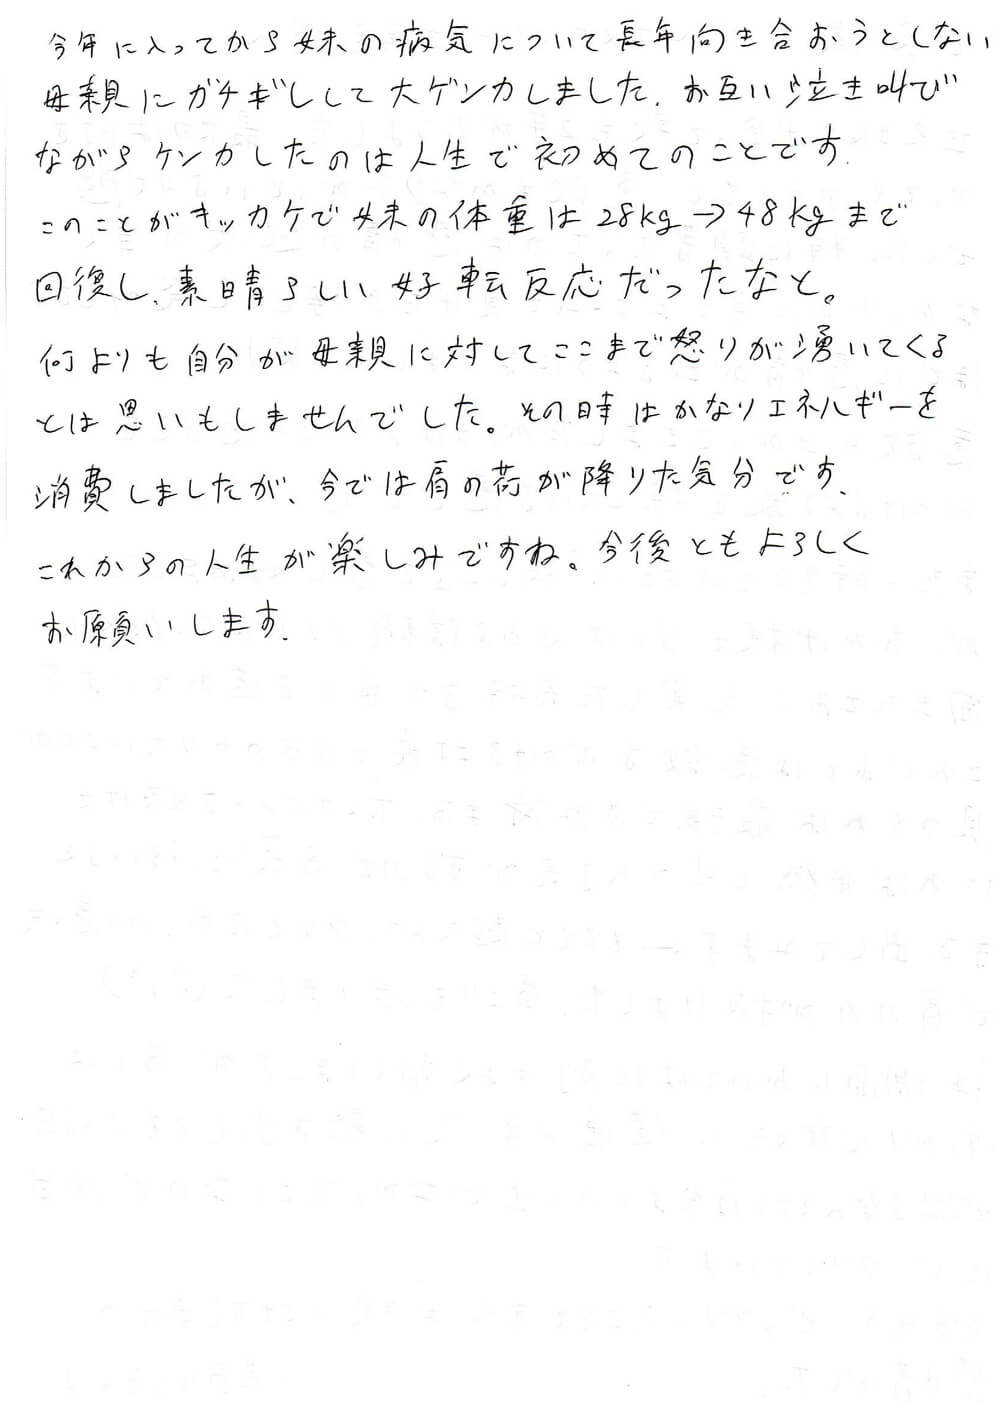 今年に入ってから妹の病気について長年向き合おうとしない
母親にガチギレして大ゲンカしました。お互い泣き叫び
ながらケンカしたのは人生で初めてのことです。
このことがキッカケで妹の体重は28kg→48kgまで
回復し、素晴らしい好転反応だったなと。
何よりも自分が母親に対してここまで怒りが湧いてくる
とは思いもしませんでした。その時はかなりエネルギーを
消費しましたが、今では肩の荷が降りた気分です。
これからの人生が楽しみですね。今後ともよろしく
お願いします。